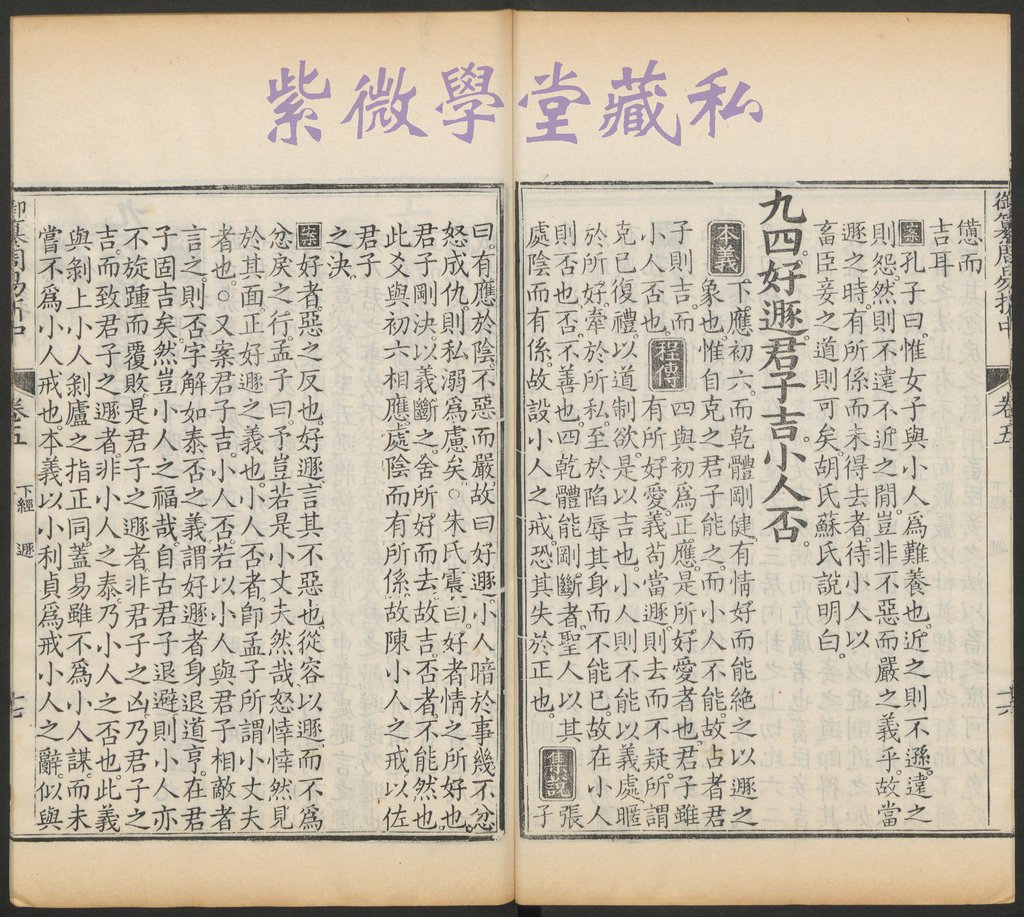 紫微學堂藏私
御纂周易折中 卷五 十六
憊而
吉耳
案 孔子曰惟女子與小人爲難養也。近之則不遜。遠之
則怨。然則不遠不近之閒。豈非不惡而嚴之義乎。故當
遯之時。有所係而未得去者。待小人以
畜臣妾之道則可矣。胡氏蘇氏說明白。
九四好遯。君子吉。小人否。
本義 下應初六。而乾體剛健。有情好而能絕之以遯之
象也。惟自克之君子能之。而小人不能。故占者君
子則吉。而 程傳 四與初爲正應。是所好愛者也。君子雖
小人否也。 有所好愛。義苟當遯。則去而不疑。所謂
克己復禮。以道制欲。是以吉也。小人則不能以義處。暱
於所好。牽於所私。至於陷辱其身而不能已。故在小人
則否也。否不善也。四乾體能剛斷者。聖人以其 集說 張
處陰而有係。故設小人之戒。恐其失於正也。 子
曰。有應於陰。不惡而嚴。故曰好遯。小人暗於事幾。不忿
怒成仇。則私溺爲慮矣。○朱氏震曰。好者情之所好也。
君子剛決。以義斷之。舍所好而去。故吉。否者。不能然也。
此爻與初六相應。處陰而有所係。故陳小人之戒。以佐
君子
之決。
案 好者惡之反也。好遯言其不惡也。從容以遯。而不爲
忿戾之行。孟子曰。予豈若是小丈夫然哉。怒悻悻然見
於其面。正好遯之義也。小人否者。卽孟子所謂小丈夫
者也。○又案君子吉。小人否。若以小人與君子相敵者
言之。則否字解如泰否之義。謂好遯者身退道亨。在君
子固吉矣。然豈小人之福哉。自古君子退避。則小人亦
不旋踵而覆敗。是君子之遯者。非君子之凶。乃君子之
吉。而致君子之遯者。非小人之泰。乃小人之否也。此義
與剝上小人剝廬之指正同。蓋易雖不爲小人謀。而未
嘗不爲小人戒也。本義以小利貞爲戒小人之辭。似與
御纂周易折中 卷五 下經 遯 十七